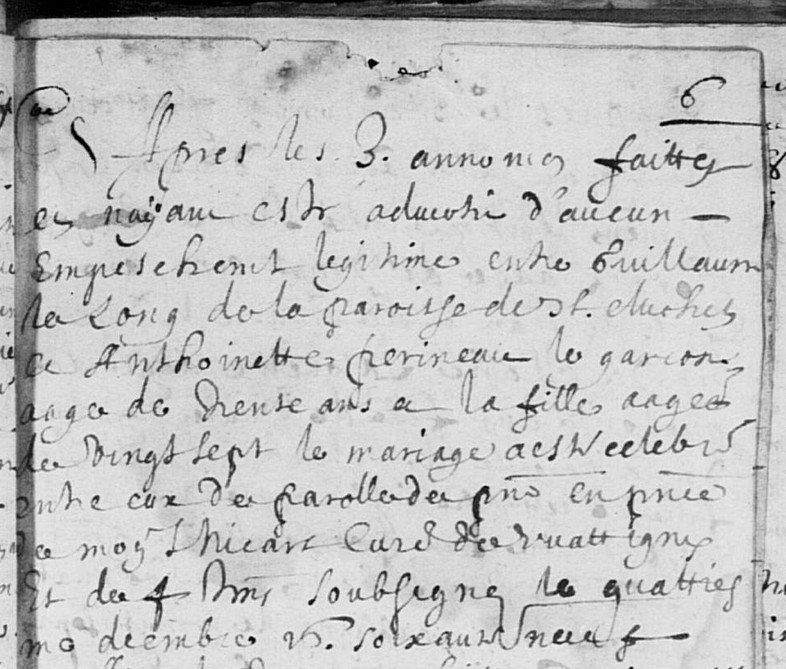 6
Apres les 3. annonces faittes
et nayant estr aducrti d'aucun
Empeschement legitime entre Guillaume
le Long de la paroisse de St. Michel
et Anthoinette perineau le garcon
aage de trente ans et la fille aagee
de vingt sept le mariage a este celebré
entre eux de parolle de pnt en pnce
de moy Curé de Wattignie
Et de 4 tms soubsigne le quattries
me decembre soixante neuf